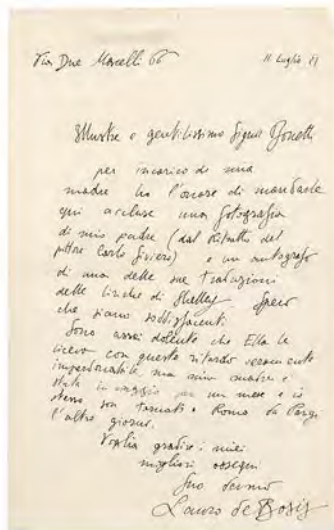 Via Due Macelli 66 11 Luglio 27
Illustre e gentilissimo Signor Bonetti
per incarico di mia
madre ho l'onore di mandarle
qui accluse una fotografia
di mio padre (dal ritratto del
pittore Carlo Siviero) e un autografo
di una delle sue traduzioni
delle liriche di Shelley Spero
che siano soddisfacenti.
Sono assai dolente che Ella le
riceva con questo ritardo veramente
imperdonabile ma mia madre è
stata in viaggio per un mese e io
stesso son tornato a Roma da Parigi
l'altro giorno.
Voglia gradire i miei
migliori ossequi
Suo devmo
Lauro de Bosis